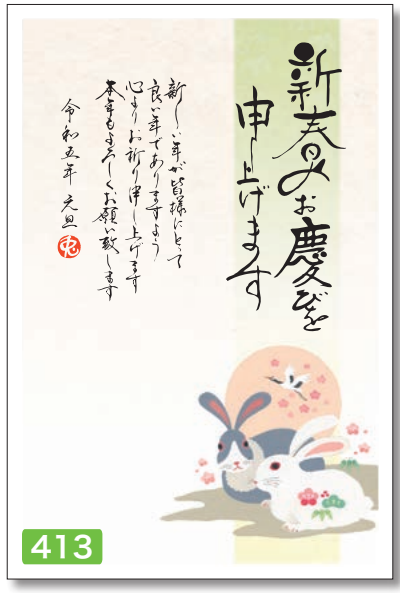 新春のお慶びを
申し上げます
新しい年が皆様にとって
良い年でありますよう
心よりお祈り申し上げます
本年もよろしくお願い致します
令和五年 元旦
兎
413